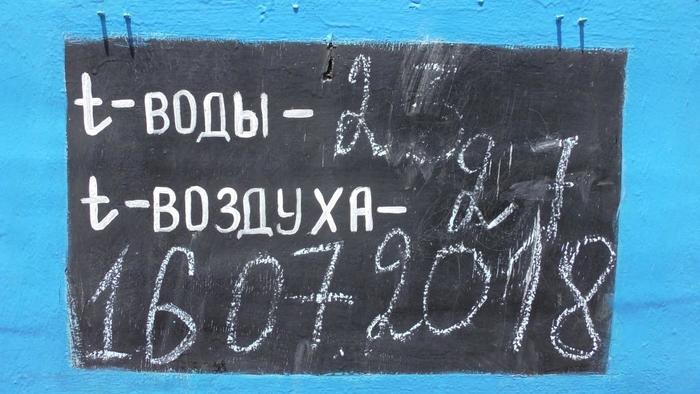 t-ВОДЫ- 23
t-ВОЗДУХА- 27
16.07.2018